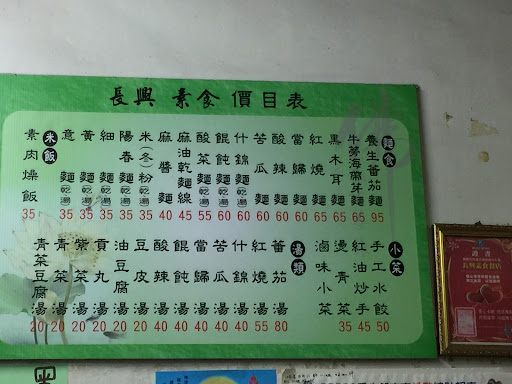 長興 素食 價目表
麵食
養生蕃茄麵 95
牛蒡海麻芽麵 65
黑木耳麵 65
紅燒麵 60
當歸麵 60
酸辣麵 60
苦瓜麵 60
什錦麵(乾湯) 60
餛飩麵(乾湯) 60
酸菜麵(乾湯) 55
麻油乾麵線 45
麻醬麵 40
米(冬)粉(乾湯) 35
陽春麵(乾湯) 35
細麵(乾湯) 35
黃麵(乾湯) 35
意麵(乾湯) 35
米飯
素肉燥飯 35
小菜
手工水餃 50
紅油炒手 45
燙青菜 35
滷味小菜
湯類
蕃茄湯 80
紅燒湯 55
什錦湯 40
當歸湯 40
餛飩湯 40
酸辣湯 40
豆皮湯 20
油豆腐湯 20
貢丸湯 20
紫菜湯 20
青菜湯 20
青菜豆腐湯 20
證書